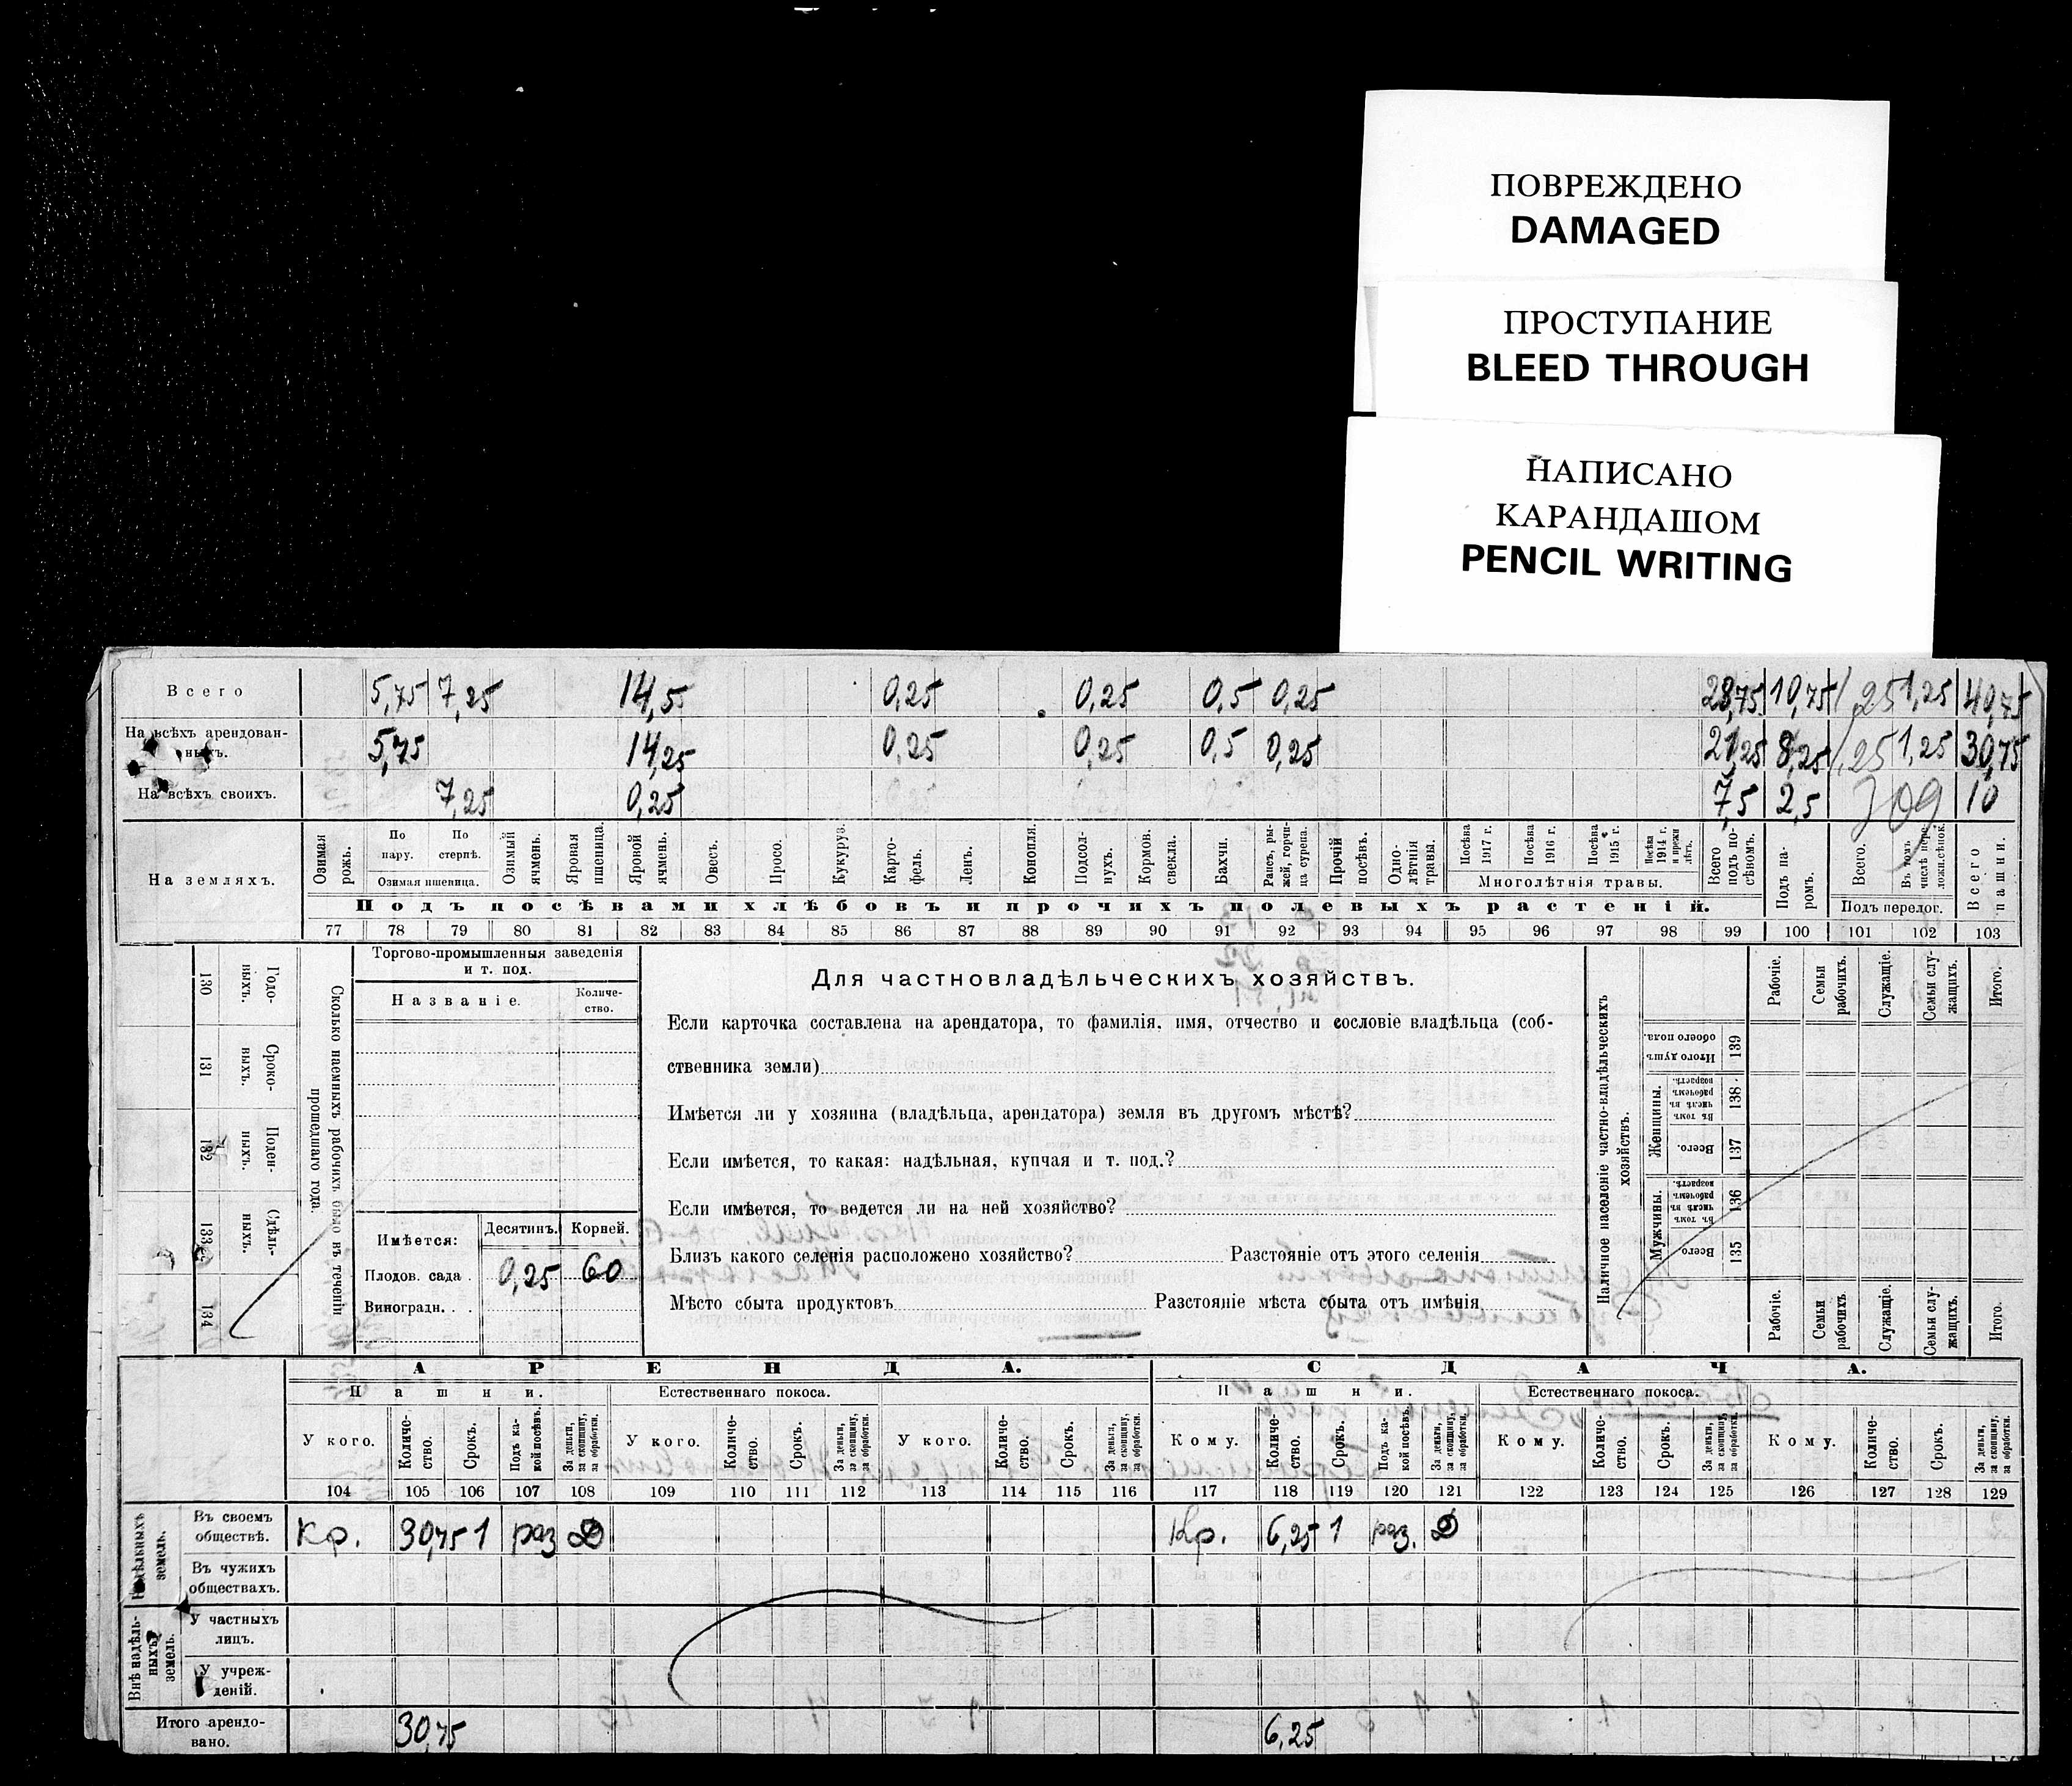 ПОВРЕЖДЕНО
DAMAGED
ПРОСТУПАНИЕ
BLEED THROUGH
НАПИСАНО
КАРАНДАШОМ
PENCIL WRITING
Всего 5,75 7,25 14,5 0,25 0,25 0,5 0,25 28,75 10,75 1,25 1,25 40,75
На всѣхъ арендован-
ныхъ. 5,75 14,25 0,25 0,25 0,5 0,25 21,25 8,25 1,25 1,25 30,75
На всѣхъ своихъ. 7,25 0,25 7,5 2,5 10
На земляхъ.
Озимая рожь.
По пару.
По стернѣ.
Озимая пшеница.
Озимый ячмень.
Яровая пшеница.
Яровой ячмень.
Овесъ.
Просо.
Кукуруз.
Карто-фель.
Ленъ.
Конопля.
Подсол-нухъ.
Кормов. свекла.
Бахчи.
Рапсъ, ры-жей, горчи-ца сурепа.
Прочій посѣвъ.
Одно-лѣтнія травы.
Посѣва 1917 г.
Посѣва 1916 г.
Посѣва 1915 г.
Посѣва 1914 г. и прежн. лѣтъ.
Многолѣтнія травы.
Всего подъ по-сѣвомъ.
Подъ па-ромъ.
Всего.
Въ томъ числѣ пере-
Подъ перелог.
Всего пашни.
Подъ посѣвами хлѣбовъ и прочихъ полевыхъ растеній.
77 78 79 80 81 82 83 84 85 86 87 88 89 90 91 92 93 94 95 96 97 98 99 100 101 102 103
130 Годо-ныхъ.
131 Сроко-ныхъ.
132 Поден-ныхъ.
133 Сдѣль-ныхъ.
134
Сколько наемныхъ рабочихъ было въ теченіи
прошлаго года.
Торгово-промышленныя заведенія
и т. под.
Названіе. Количе-ство.
Имѣется: Десятинъ. Корней.
Плодов. сада . 0,25 60
Виноградн. . .
Для частновладѣльческихъ хозяйствъ.
Если карточка составлена на арендатора, то фамилія, имя, отчество и сословіе владѣльца (соб-
ственника земли)
Имѣется ли у хозяина (владѣльца, арендатора) земля въ другомъ мѣстѣ?
Если имѣется, то какая: надѣльная, купчая и т. под.?
Если имѣется, то ведется ли на ней хозяйство?
Близъ какого селенія расположено хозяйство? Разстояніе отъ этого селенія
Мѣсто сбыта продуктовъ Разстояніе мѣста сбыта отъ имѣнія
Наличное населеніе частно-владѣльческихъ
хозяйствъ.
Рабочіе. Семьи рабочихъ. Служащіе. Семьи слу-жащихъ. Итого.
Итого душъ обоего пола. 139
Женщины. Въ томъ числѣ въ рабочемъ возрастѣ. 138
Всего. 137
Мужчины. Въ томъ числѣ въ рабочемъ возрастѣ. 136
Всего. 135
Рабочіе. Семьи рабочихъ. Служащіе. Семьи слу-жащихъ. Итого.
АРЕНДА. СДАЧА.
Пашни. Естественнаго покоса. Пашни. Естественнаго покоса.
У кого. Количе-ство. Срокъ. Подъ ка-кой посѣвъ. За деньги, за скопщину, за обработки. У кого. Количе-ство. Срокъ. За деньги, за скопщину, за обработки. У кого. Количе-ство. Срокъ. За деньги, за скопщину, за обработки. Кому. Количе-ство. Срокъ. Подъ ка-кой посѣвъ. За деньги, за скопщину, за обработки. Кому. Количе-ство. Срокъ. За деньги, за скопщину, за обработки. Кому. Количе-ство. Срокъ. За деньги, за скопщину, за обработки.
104 105 106 107 108 109 110 111 112 113 114 115 116 117 118 119 120 121 122 123 124 125 126 127 128 129
Надѣльныхъ земель.
Въ своемъ
обществѣ. Кр. 30,75 1 раз Д Кр. 6,25 1 раз. Д
Въ чужихъ
обществахъ.
Внѣ надѣль-ныхъ земель.
У частныхъ
лицъ.
У учреж-
деній.
Итого арендо-
вано. 30,75 6,25